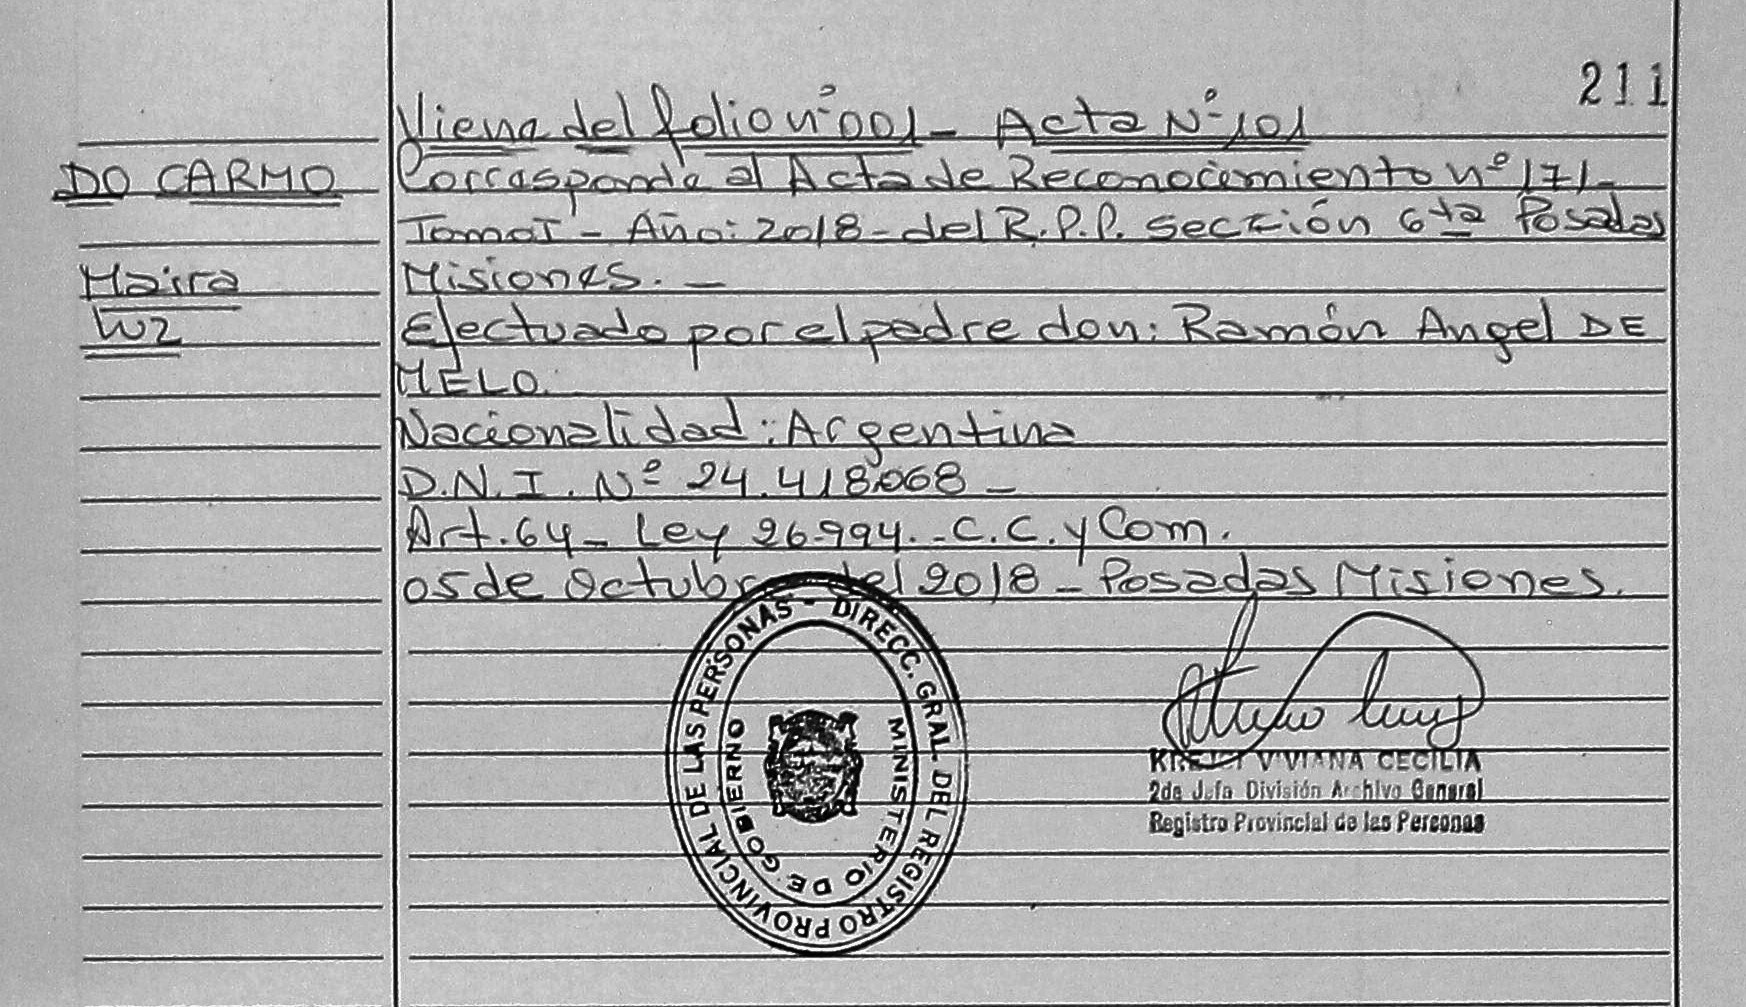 211
Viene del folio nº 001 - Acta Nº 101
DO CARMO
Corresponde al Acta de Reconocimiento nº 171-
Tomo I - Año: 2018 - del R.P.P. sección 6ta Posadas
Maira
Misiones. -
Luz
Efectuado por el padre don: Ramón Angel DE
MELO.
Nacionalidad: Argentina
D.N.I. Nº 24.418.068 -
Art. 64 - Ley 26.994. - C.C. y Com.
05 de Octubre del 2018 - Posadas Misiones.
DIRECC. GRAL. DEL REGISTRO PROVINCIAL DE LAS PERSONAS -
MINISTERIO DE GOBIERNO
VIVIANA CECILIA
2da Jefa División Archivo General
Registro Provincial de las Personas